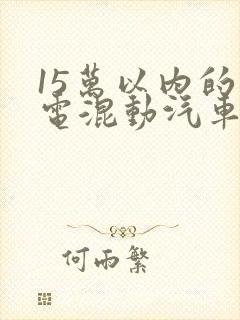 15萬以内的
電混動汽車
何雨繁